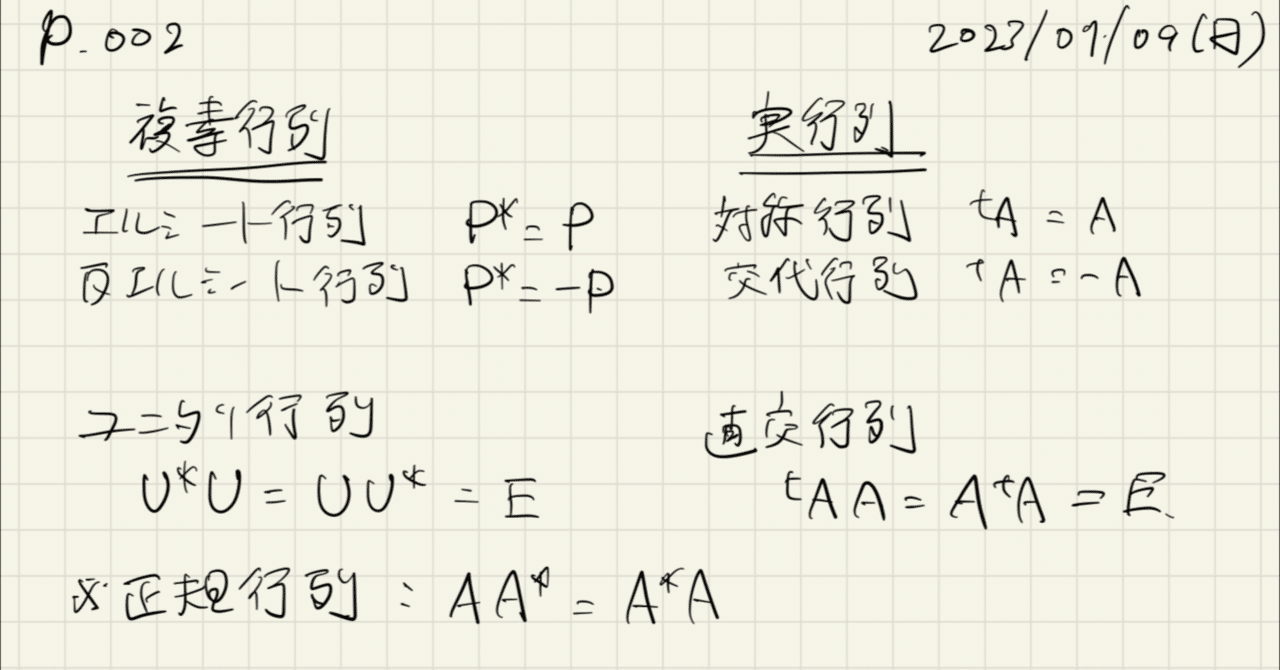 P.002 2023/07/09(日)
複素行列 実行列
エルミート行列 P* = P 対称行列 ᵗA = A
反エルミート行列 P* = -P 交代行列 ᵗA = -A
ユニタリ行列 直交行列
U*U = UU* = E ᵗAA = AᵗA = E
※正規行列 : AA* = A*A